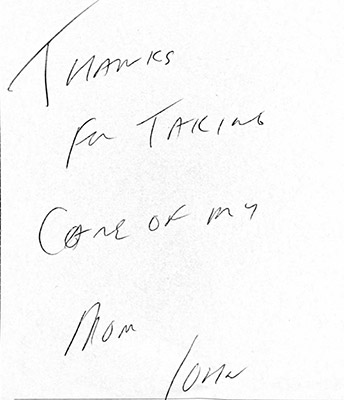 THANKS
for TAKING
CARE OF MY
MOM
JOHN